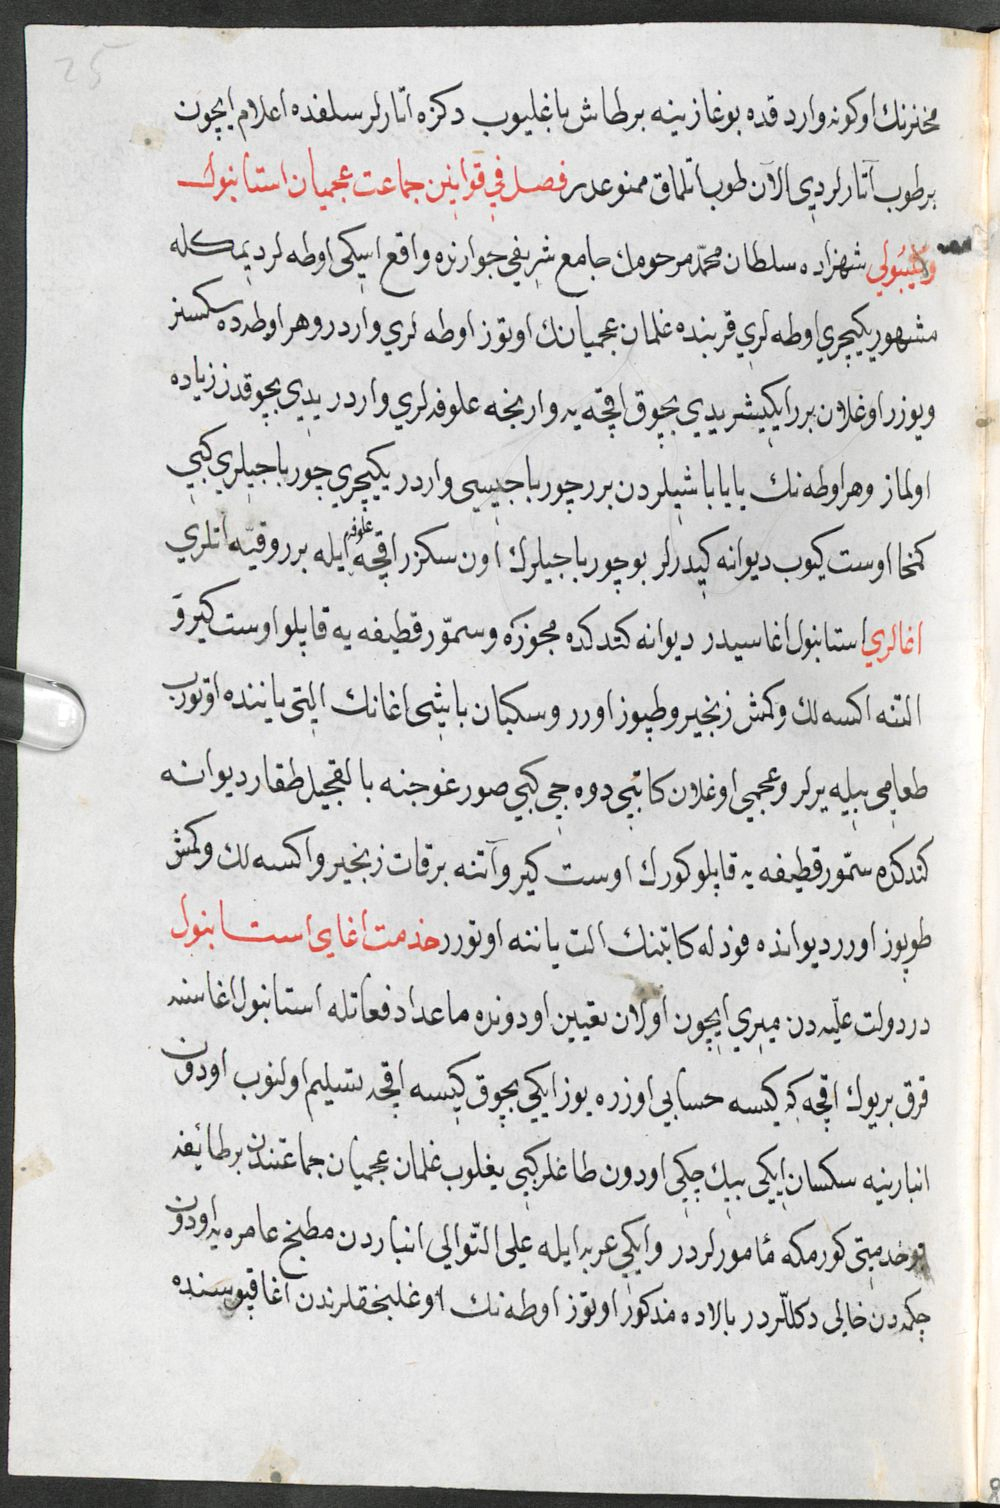 25
مخنزنك اوكونه وارد قده بوغازينه بر طاش باغليوب دكزه اتارلر سلفده اعلام ايچون
بر طوب آتارلردي الآن طوب اتلماق ممنوعدر فصل في قوانين جماعت عجميان استانبول
وكليبولي شهزاده سلطان محمّد مرحومك جامع شريفي جوارنده واقع اسكي اوطه لر ديمكله
مشهور يكيچري اوطه لري قربنده غلمان عجميانك اوتوز اوطه لري واردر وهر اوطه ده سكسنر
ويوزر اوغلان برر ايكيشر يدي بچوق اقچه يه وارنجه علوفه لري واردر يدي بچوقدن زياده
اولماز وهر اوطه نك يايا باشيلردن برر چورباجيسى واردر يكيچري چورباجيلري كبي
كتخا اوست كيوب ديوانه كيدرلر بو چورباجيلرك اون سكزر اقچه علوفه ايله برر وقيّه اتلري
اغالري استانبول اغاسيدر ديوانه كتدكده مجوزه وسمّور قطيفه يه قاپلو اوست كير و
التنه اكسه لك وكمش زنجير وطپوز اورر وسكبان باشى اغانك التى ياننده اوتورب
طعامى بيله يرلر وعجمي اوغلان كاتبي دوه جي كبي صورغوجنه بالقجيل طقار ديوانه
كتدكده سمّور قطيفه يه قاپلو كورك اوست كير وآتنه بر قات زنجير واكسه لك وكمش
طوپوز اورر ديوانده فودله كاتبنك الت ياننه اوتورر خدمت اغاى استانبول
در دولت عليّه دن ميري ايچون اولان تعيين اودونده ماعدا دفعاتله استانبول اغاسنه
قرق بر يوك اقچه كه كيسه حسابي اوزره يوز ايكي بچوق كيسه اقچه تسليم اولنوب اودون
انبارينه سكسان ايكى بيك چكى اودون طاغلر كبي يغلوب غلمان عجميان جماعتندن بر طائفه
بو خدمتى كورمكه مأمورلردر وايكي عربه ايله على التّوالى انباردن مطبخ عامره يه اودون
چكمه دن خالى دكللردر بالاده مذكور اوتوز اوطه نك اوغلنجقلرندن اغا قپوسنده